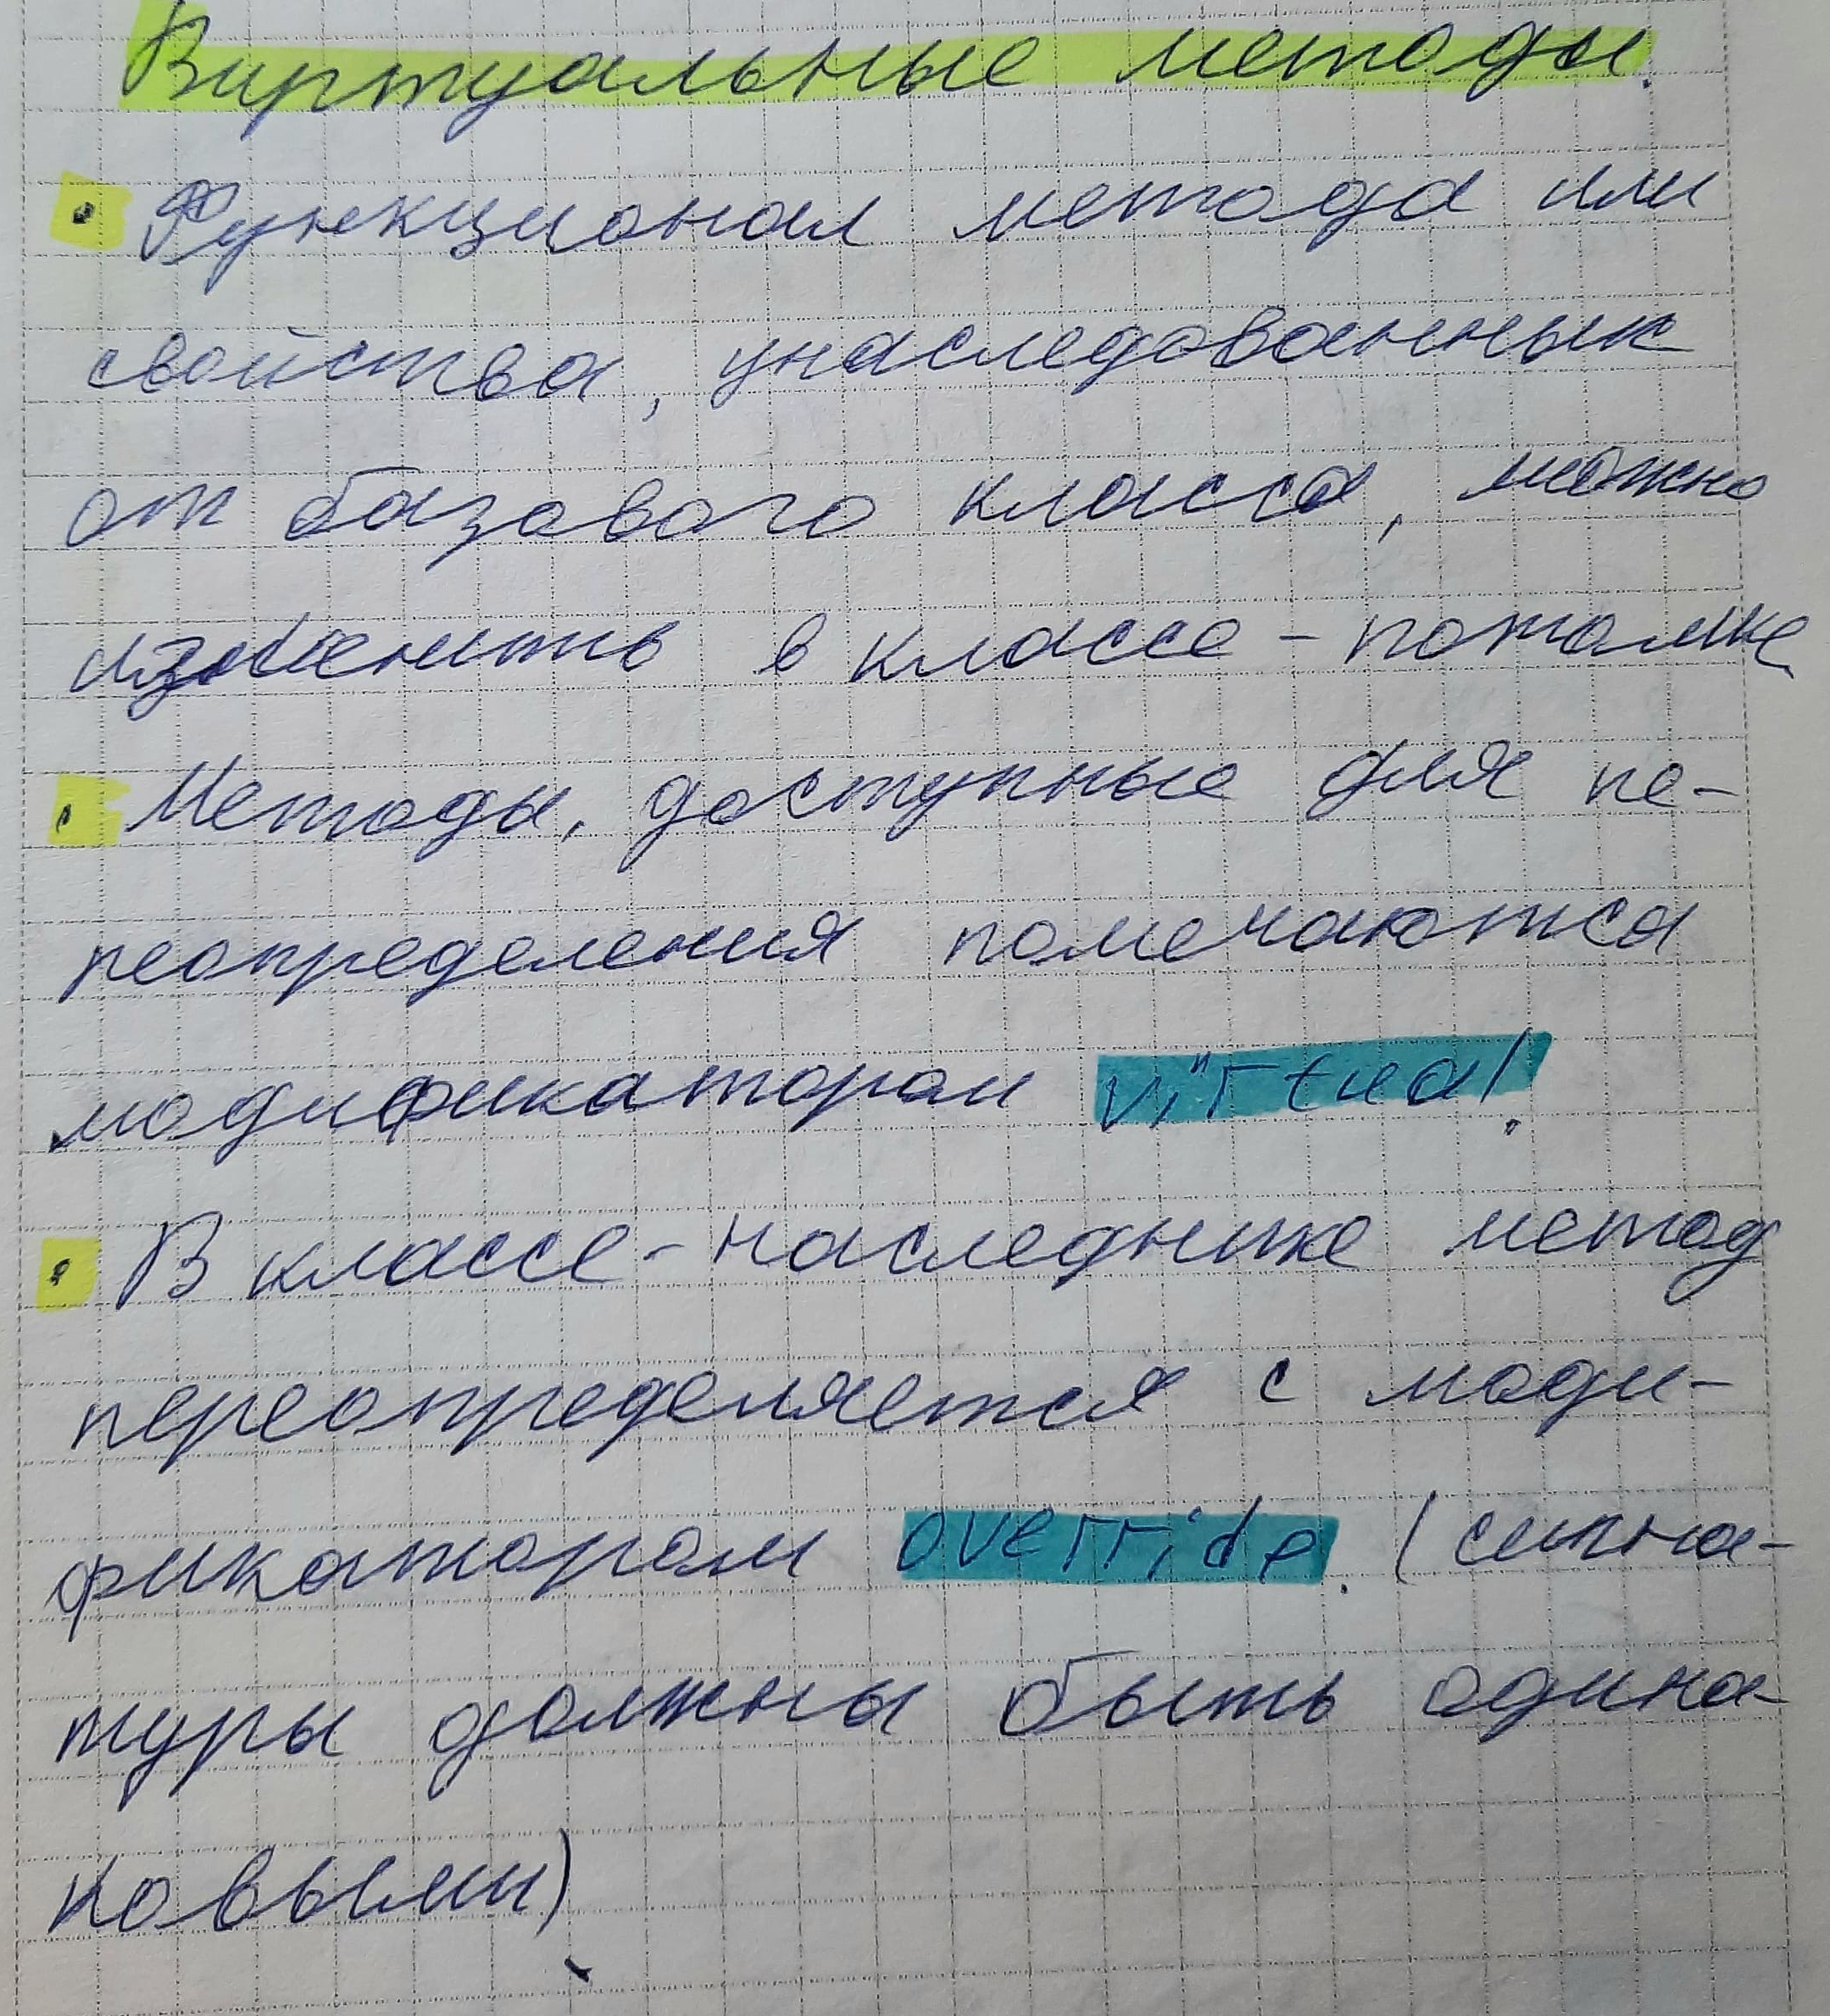 Виртуальные методы.
• Функционал метода или
свойства, унаследованных
от базового класса, можно
изменить в классе-потомке
• Методы, доступные для пе-
реопределения помечаются
модификатором virtual.
• В классе-наследнике метод
переопределяется с моди-
фикатором override. (сигна-
туры должны быть одина-
ковыми)